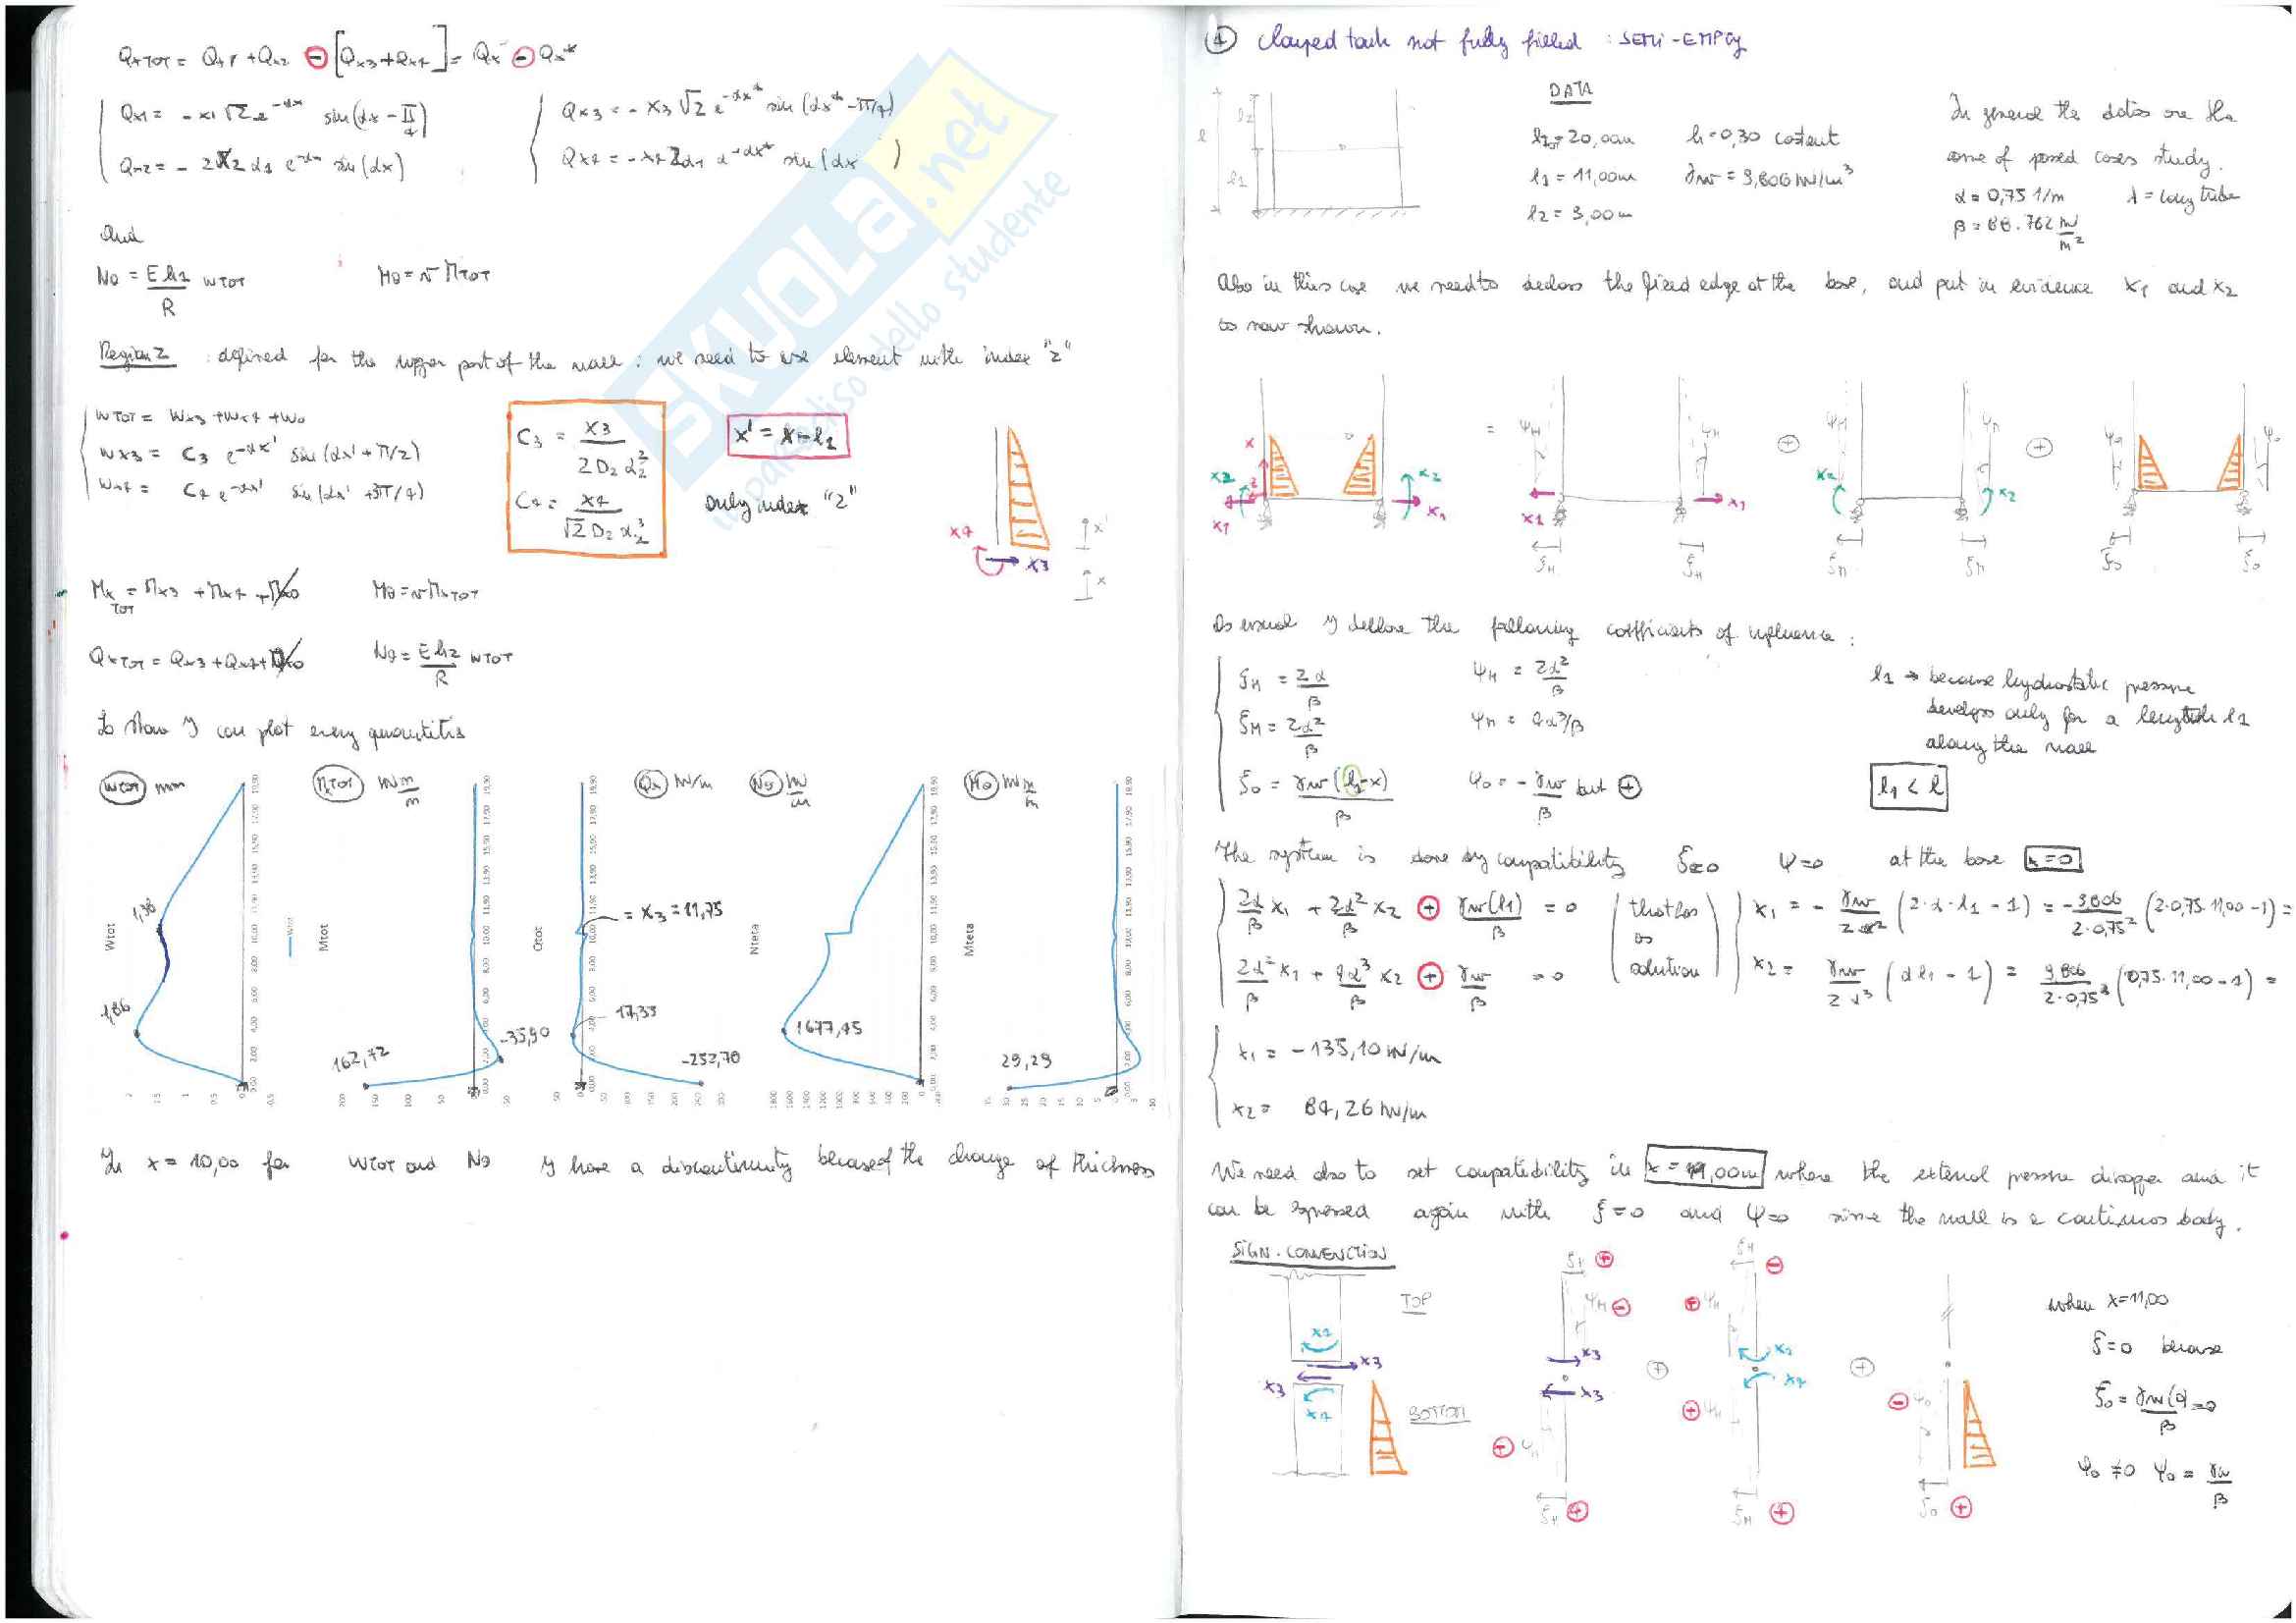 QxTOT = Qx1 + Qx2 ⊖ [Qx3 + Qx4] = Qx⁻ ⊖ Qx*
Qx1 = - x1 √2 e^-αx sin(αx - π/4)
Qx2 = - 2 X2 α1 e^-αx sin(αx)
Qx3 = - x3 √2 e^-αx* sin(αx* - π/4)
Qx4 = - x4 2α1 e^-αx* sin(αx )
And
Nθ = E h1 / R wTOT
Mθ = ν MTOT
Region 2 : defined for the upper part of the wall : we need to use element with index "2"
wTOT = wx3 + wx4 + w0
wx3 = C3 e^-αx' sin(αx' + π/2)
wx4 = C4 e^-αx' sin(αx' + 3π/4)
C3 = x3 / 2 D2 α2²
C4 = x4 / √2 D2 α2³
x' = x - l1
Only index "2"
x4
x3
x'
x
Mx TOT = Mx3 + Mx4 + Mx0
Mθ = ν MxTOT
QxTOT = Qx3 + Qx4 + Qx0
Nθ = E h2 / R wTOT
So now I can plot every quantities
wTOT mm
MTOT kNm/m
Qx kN/m
Nθ kN/m
Mθ kNm/m
Wtot
Mtot
Qtot
Nteta
Mteta
1,38
1,86
162,72
-35,90
= x3 = 11,75
17,33
-253,70
1677,45
29,29
In x = 10,00 for wTOT and Nθ I have a discontinuity because of the change of thickness
SKUOLA.net
il paradiso dello studente
④ Clamped tank not fully filled : SEMI-EMPTY
l
l2
l1
DATA
lTOT = 20,00m
l1 = 11,00m
l2 = 9,00m
h = 0,30 costant
γw = 9,806 kN/m³
In general the datas are the
same of posed cases study.
α = 0,75 1/m
λ = long tube
β = 88.762 kN/m²
Also in this case we need to declass the fixed edge at the base, and put in evidence x1 and x2
as now shown.
x x2 x1 x2 x1
= ψH ψH x1 x1 ξH ξH
⊕ ψM ψM x2 x2 ξM ξM
⊕ ψ0 ψ0 ξ0 ξ0
As usual I define the following coefficients of influence :
ξH = 2α/β
ψH = 2α²/β
ξM = 2α²/β
ψM = 4α³/β
ξ0 = γw(l1-x)/β
ψ0 = - γw/β but ⊕
l1 → because hydrostatic pressure
develops only for a length l1
along the wall
l1 < l
The system is done by compatibility ξ=0 ψ=0 at the base x=0
2α/β x1 + 2α²/β x2 ⊕ γw(l1)/β = 0
2α²/β x1 + 4α³/β x2 ⊕ γw/β = 0
that has
as
solution
x1 = - γw/2α² (2·α·l1 - 1) = - 9,806/2·0,75² (2·0,75·11,00-1) =
x2 = γw/2α³ (αl1 - 1) = 9,806/2·0,75³ (0,75·11,00-1) =
x1 = - 135,10 kN/m
x2 = 84,26 kN/m
We need also to set compatibility in x = 11,00m where the external pressure disappear and it
can be expressed again with ξ=0 and ψ=0 since the wall is a continuos body.
SIGN CONVENCTION
TOP
BOTTOM
x3
x3
x4
ξH ⊕
ψH ⊖
x3
x3
⊕ ψH
ξH ⊕
ξM ⊖
⊕ ψM
x4
⊕ ψM
ξM ⊕
⊖ ψ0
ξ0 ⊕
when x=11,00
ξ=0 because
ξ0 = γw(0)/β = 0
ψ0 ≠ 0 ψ0 = γw/β